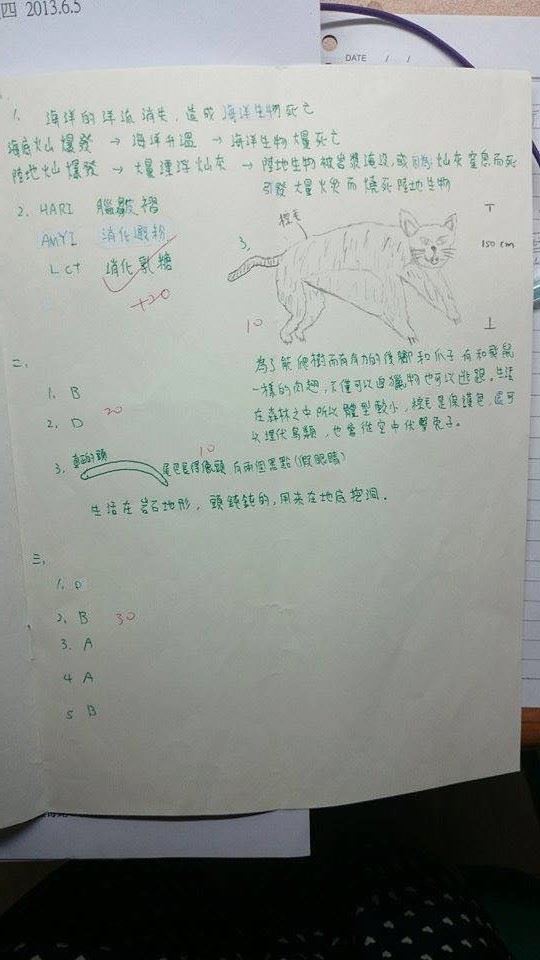 四 2013.6.5
DATE / /
1. 海洋的洋流消失，造成海洋生物死亡
海底火山爆發 → 海洋升溫 → 海洋生物大量死亡
陸地火山爆發 → 大量漂浮火山灰 → 陸地生物被岩漿淹沒或因為火山灰窒息而死
引發大量火災而燒死陸地生物
2. HARI 腦皺褶
AMYI 消化澱粉
LCT 消化乳糖
+20
3.
棕毛
150 cm
10
為了能爬樹而有有力的後腳和爪子 有和飛鼠
一樣的肉翅，不僅可以追獵物也可以逃跑。生活
在森林之中所以體型較小，棕毛是保護色，還可
以埋伏鳥類，也會從空中伏擊兔子。
二、
1. B
2. D
20
3. 真正的頭
尾巴長得像頭 有兩個黑點(假眼睛)
10
生活在岩石地形，頭鈍鈍的，用來在地底挖洞。
三、
1. D
2. B
30
3. A
4 A
5 B